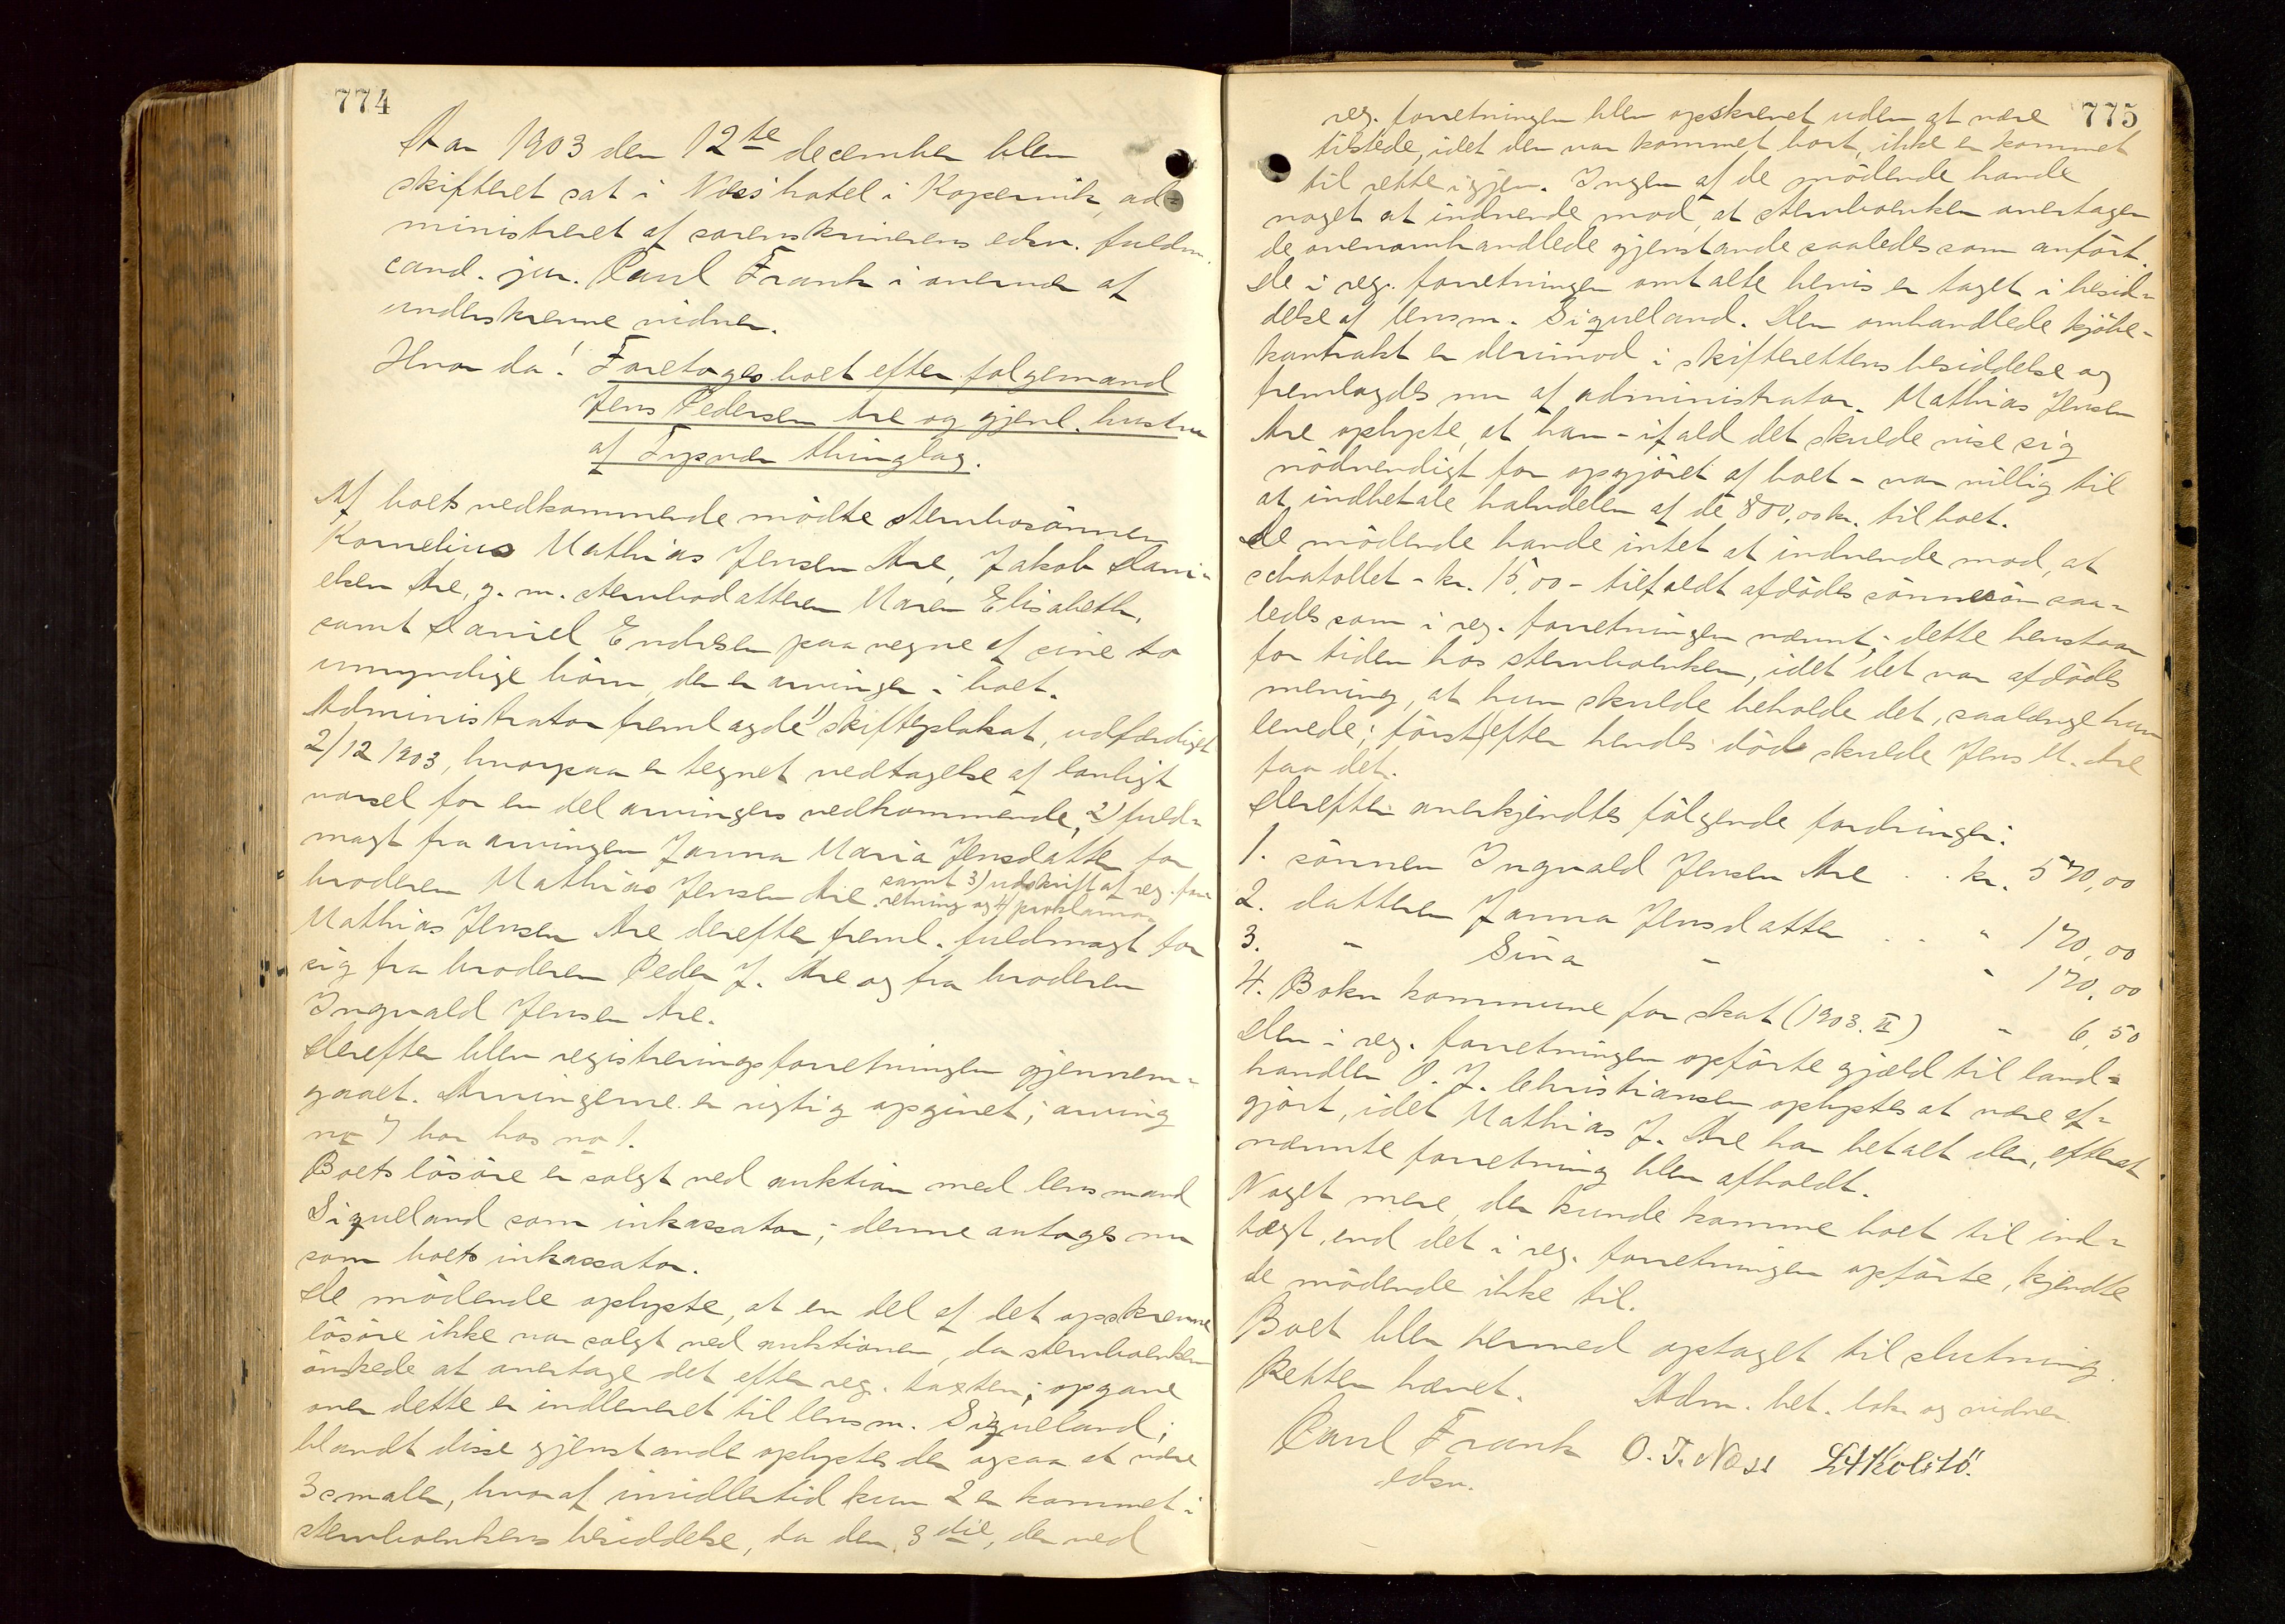 774
Aar 1903 den 12te december blev
skifteret sat i Næss' hotel i Kopervik, ad-
ministreret af sorenskriverens edsv. fuldm.
cand. jur. Paul Frank i overvær af
underskrevne vidner.
Hvor da! Foretoges boet efter folgemand
Jens Pedersen Are og gjenl. hustru
af Tysvær thinglag.
Af boets vedkommende mödte stervbosönnen
Kornelius Mathias Jensen Are, Jakob Dani-
elsen Are, g. m. stervbodatteren Maren Elisabeth,
samt Daniel Endresen paa vegne af sine to
umyndige börn, der er arvinger i boet.
Administrator fremlagde 1) skifteplakat, udfærdiget
2/12 1903, hvorpaa er tegnet vedtagelse af lovligt
varsel for en del arvingers vedkommende, 2) fuld-
magt fra arvingen Janna Maria Jensdatter for
broderen Mathias Jensen Are samt 3) udskrift af reg. for-
retning og 4) proklama
Mathias Jensen Are derefter freml. fuldmagt for
sig fra broderen Peder J. Are og fra broderen
Ingvald Jensen Are.
Derefter blev registreringsforretningen gjennem-
gaaet. Arvingerne er rigtig opgivet; arving
no 7 bor hos no 1.
Boets lösöre er solgt ved auktion med lensmand
Sigveland som inkassator; denne antoges nu
som boets inkassator.
De mödende oplyste, at en del af det opskrevne
lösöre ikke var solgt ved auktionen, da stervboenken
önskede at overtage det efter reg. taxten; opgave
over dette er indleveret til lensm. Sigveland;
blandt disse gjenstande oplystes der ogsaa at være
3 smaler, hvoraf imidlertid kun 2 er kommet i
stervboenkens besiddelse, da den 3die, der ved
775
reg. forretningen blev opskrevet uden at være
tilstede, idet den var kommet bort, ikke er kommet
til rette igjen. Ingen af de mödende havde
noget at indvende mod, at stervboenken overtager
de ovenomhandlede gjenstande saaledes som anfört.
De i reg. forretningen omtalte bevis er taget i besid-
delse af lensm. Sigveland. Den omhandlede kjöbe-
kontrakt er derimod i skifterettens besiddelse og
fremlagdes nu af administrator. Mathias Jensen
Are oplyste, at han - ifald det skulde vise sig
nödvendigt for opgjöret af boet - var villig til
at indbetale halvdelen af de 800,00 kr. til boet.
De mödende havde intet at indvende mod, at
schatollet - kr. 15,00 - tilfaldt afdödes sönnesön saa-
ledes som i reg. forretningen nævnt; dette henstaar
for tiden hos stervboenken, idet det var afdödes
mening, at hun skulde beholde det, saalænge hun
levede; först efter hendes död skulde Jens M. Are
faa det.
Derefter anerkjendtes fölgende fordringer:
1. sönnen Ingvald Jensen Are . . kr. 570,00
2. datteren Janna Jensdatter . . " 170,00
3. " Sina " " 170,00
4. Bokn kommune for skat (1903. II) " 6,50
Den i reg. forretningen opförte gjæld til land-
handler O. J. Christiansen oplystes at være af-
gjort, idet Mathias J. Are har betalt den, efterat
nævnte forretning blev afholdt.
Noget mere, der kunde komme boet til ind-
tægt, end det i reg. forretningen opförte, kjendte
de mödende ikke til.
Boet blev hermed optaget til slutning.
Retten hævet. Adm. bet. lok. og vidner.
Paul Frank O. T. Næss
edsv.